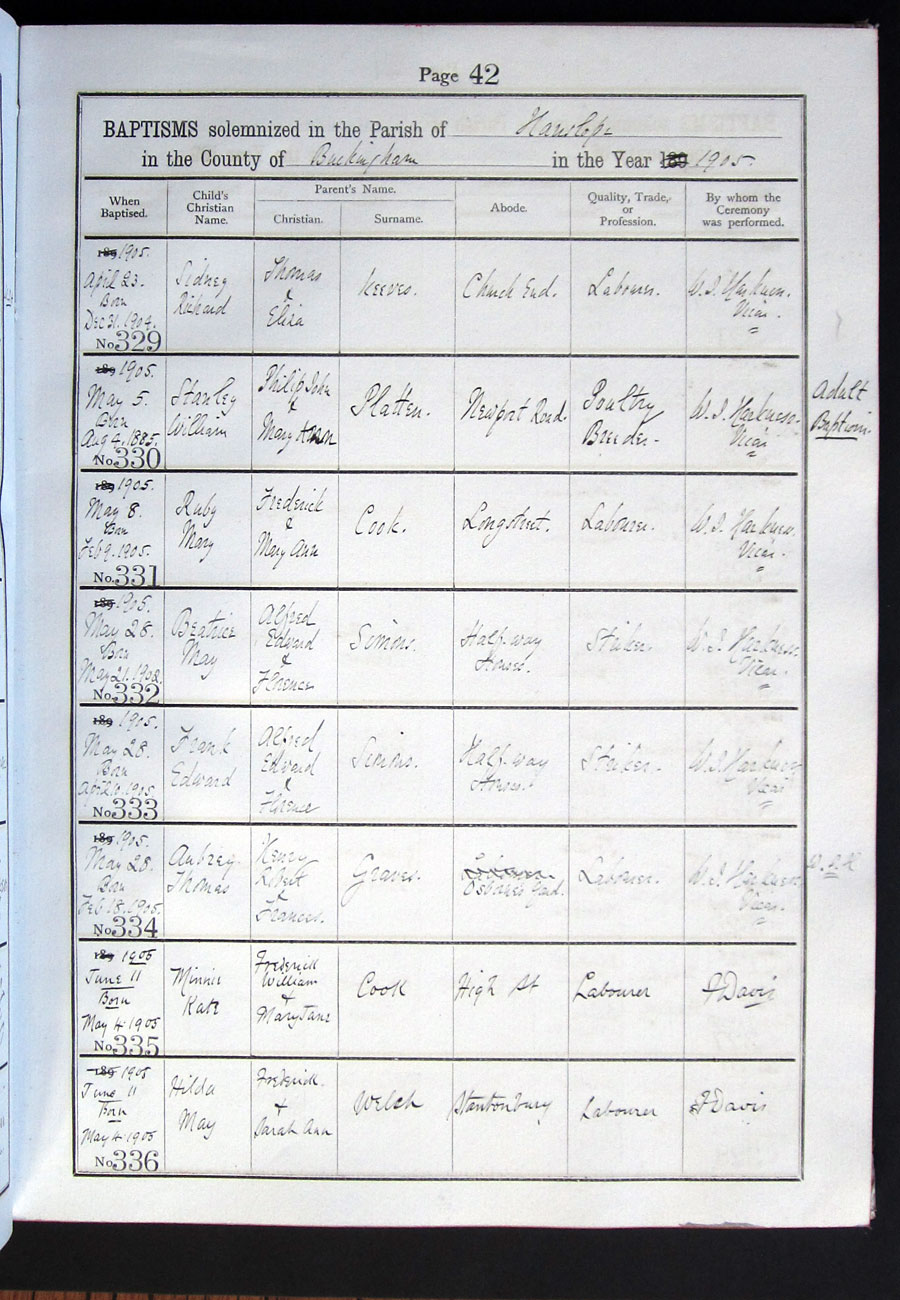 Page 42
BAPTISMS solemnized in the Parish of Hanslope
in the County of Buckingham in the Year 189 1905.
When Baptised.
Child's Christian Name.
Parent's Name.
Christian.
Surname.
Abode.
Quality, Trade, or Profession.
By whom the Ceremony was performed.
189 1905.
April 23.
Born
Dec 31. 1904.
No. 329
Sidney
Richard
Thomas
&
Eliza
Keeves.
Church End.
Labourer.
W. J. Harkness.
Vicar.
189 1905.
May 5.
Born
Aug 4. 1885.
No. 330
Stanley
William
Philip John
&
Mary Ann
Platten.
Newport Road.
Poultry
Breeder.
W. J. Harkness.
Vicar
Adult
Baptism.
189 1905.
May 8.
Born
Feb 9. 1905.
No. 331
Ruby
Mary
Frederick
&
Mary Ann
Cook.
Longstreet.
Labourer.
W. J. Harkness.
Vicar.
189 1905.
May 28.
Born
May 21.
No. 332
Beatrice
May
Alfred
Edward
&
Florence
Simons.
Half-way
Houses.
Striker.
W. J. Harkness.
Vicar.
189 1905.
May 28.
Born
April 1905.
No. 333
Frank
Edward
Alfred
Edward
&
Florence
Simons.
Half-way
Houses.
Striker.
W. J. Harkness
Vicar
189 1905.
May 28.
Born
Feb 18. 1905.
No. 334
Aubrey
Thomas
Henry
Robert
&
Frances.
Graves.
Labourer.
Osbornes Yard.
Labourer.
W. J. Harkness.
Vicar.
189 1905
June 11
Born
May 4. 1905
No. 335
Minnie
Kate
Frederick
William
+
Mary Jane
Cook
High St
Labourer
F Davis
189 1905
June 11
Born
May 4. 1905
No. 336
Hilda
May
Frederick.
+
Sarah Ann
Welch
Stantonbury
Labourer
F Davis